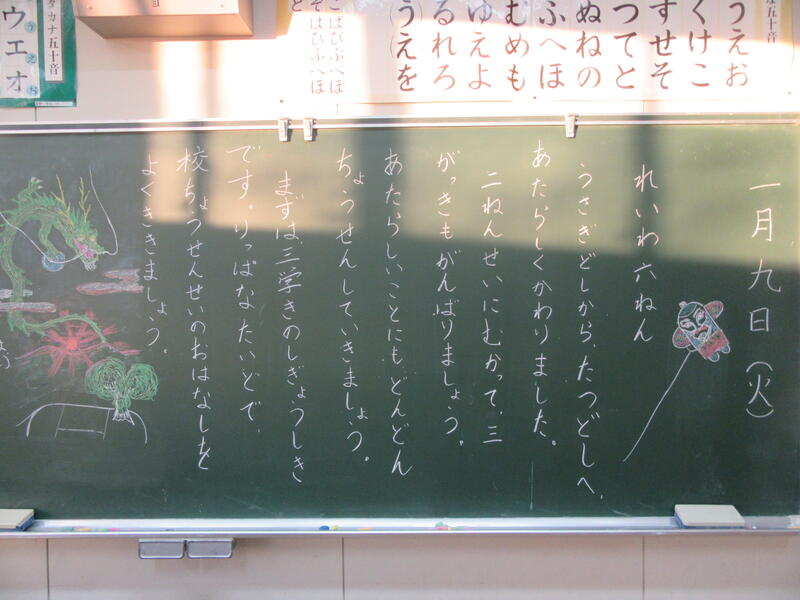 な五十音
うえお
くけこ
すせそ
つてと
ぬねの
ふへほ
むめも
ゆえよ
るれろ
(う)えを
一月九日(火)
れいわ六ねん
うさぎどしから、たつどしへ、
あたらしくかわりました。
二ねんせいにむかって、三
がっきもがんばりましょう。
あたらしいことにも、どんどん
ちょうせんしていきましょう。
まずは、三学きのしぎょうしき
です。りっぱなたいどで、
校ちょうせんせいのおはなしを
よくききましょう。
タカナ五十音
ウエオ